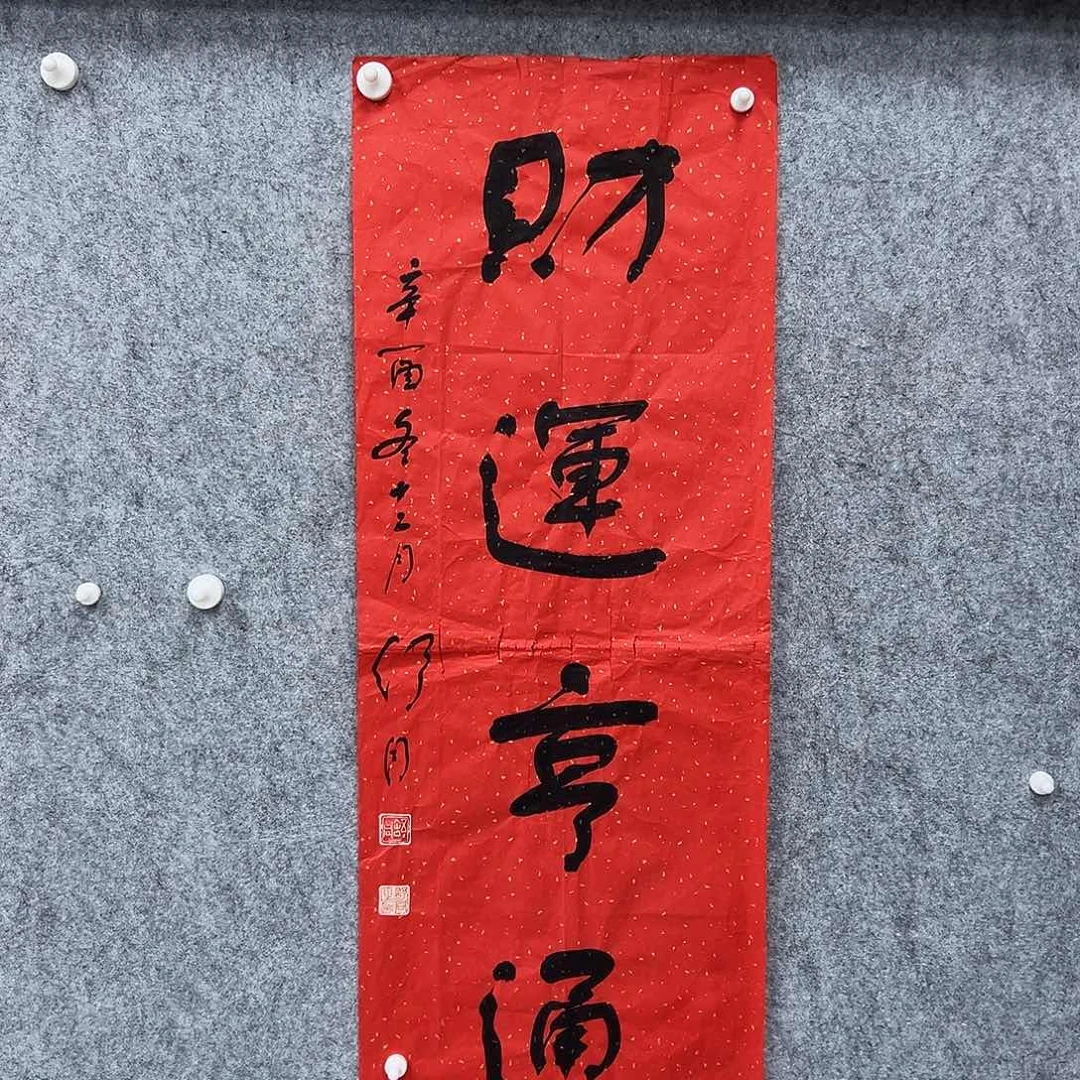 財運亨通
辛酉冬十二月